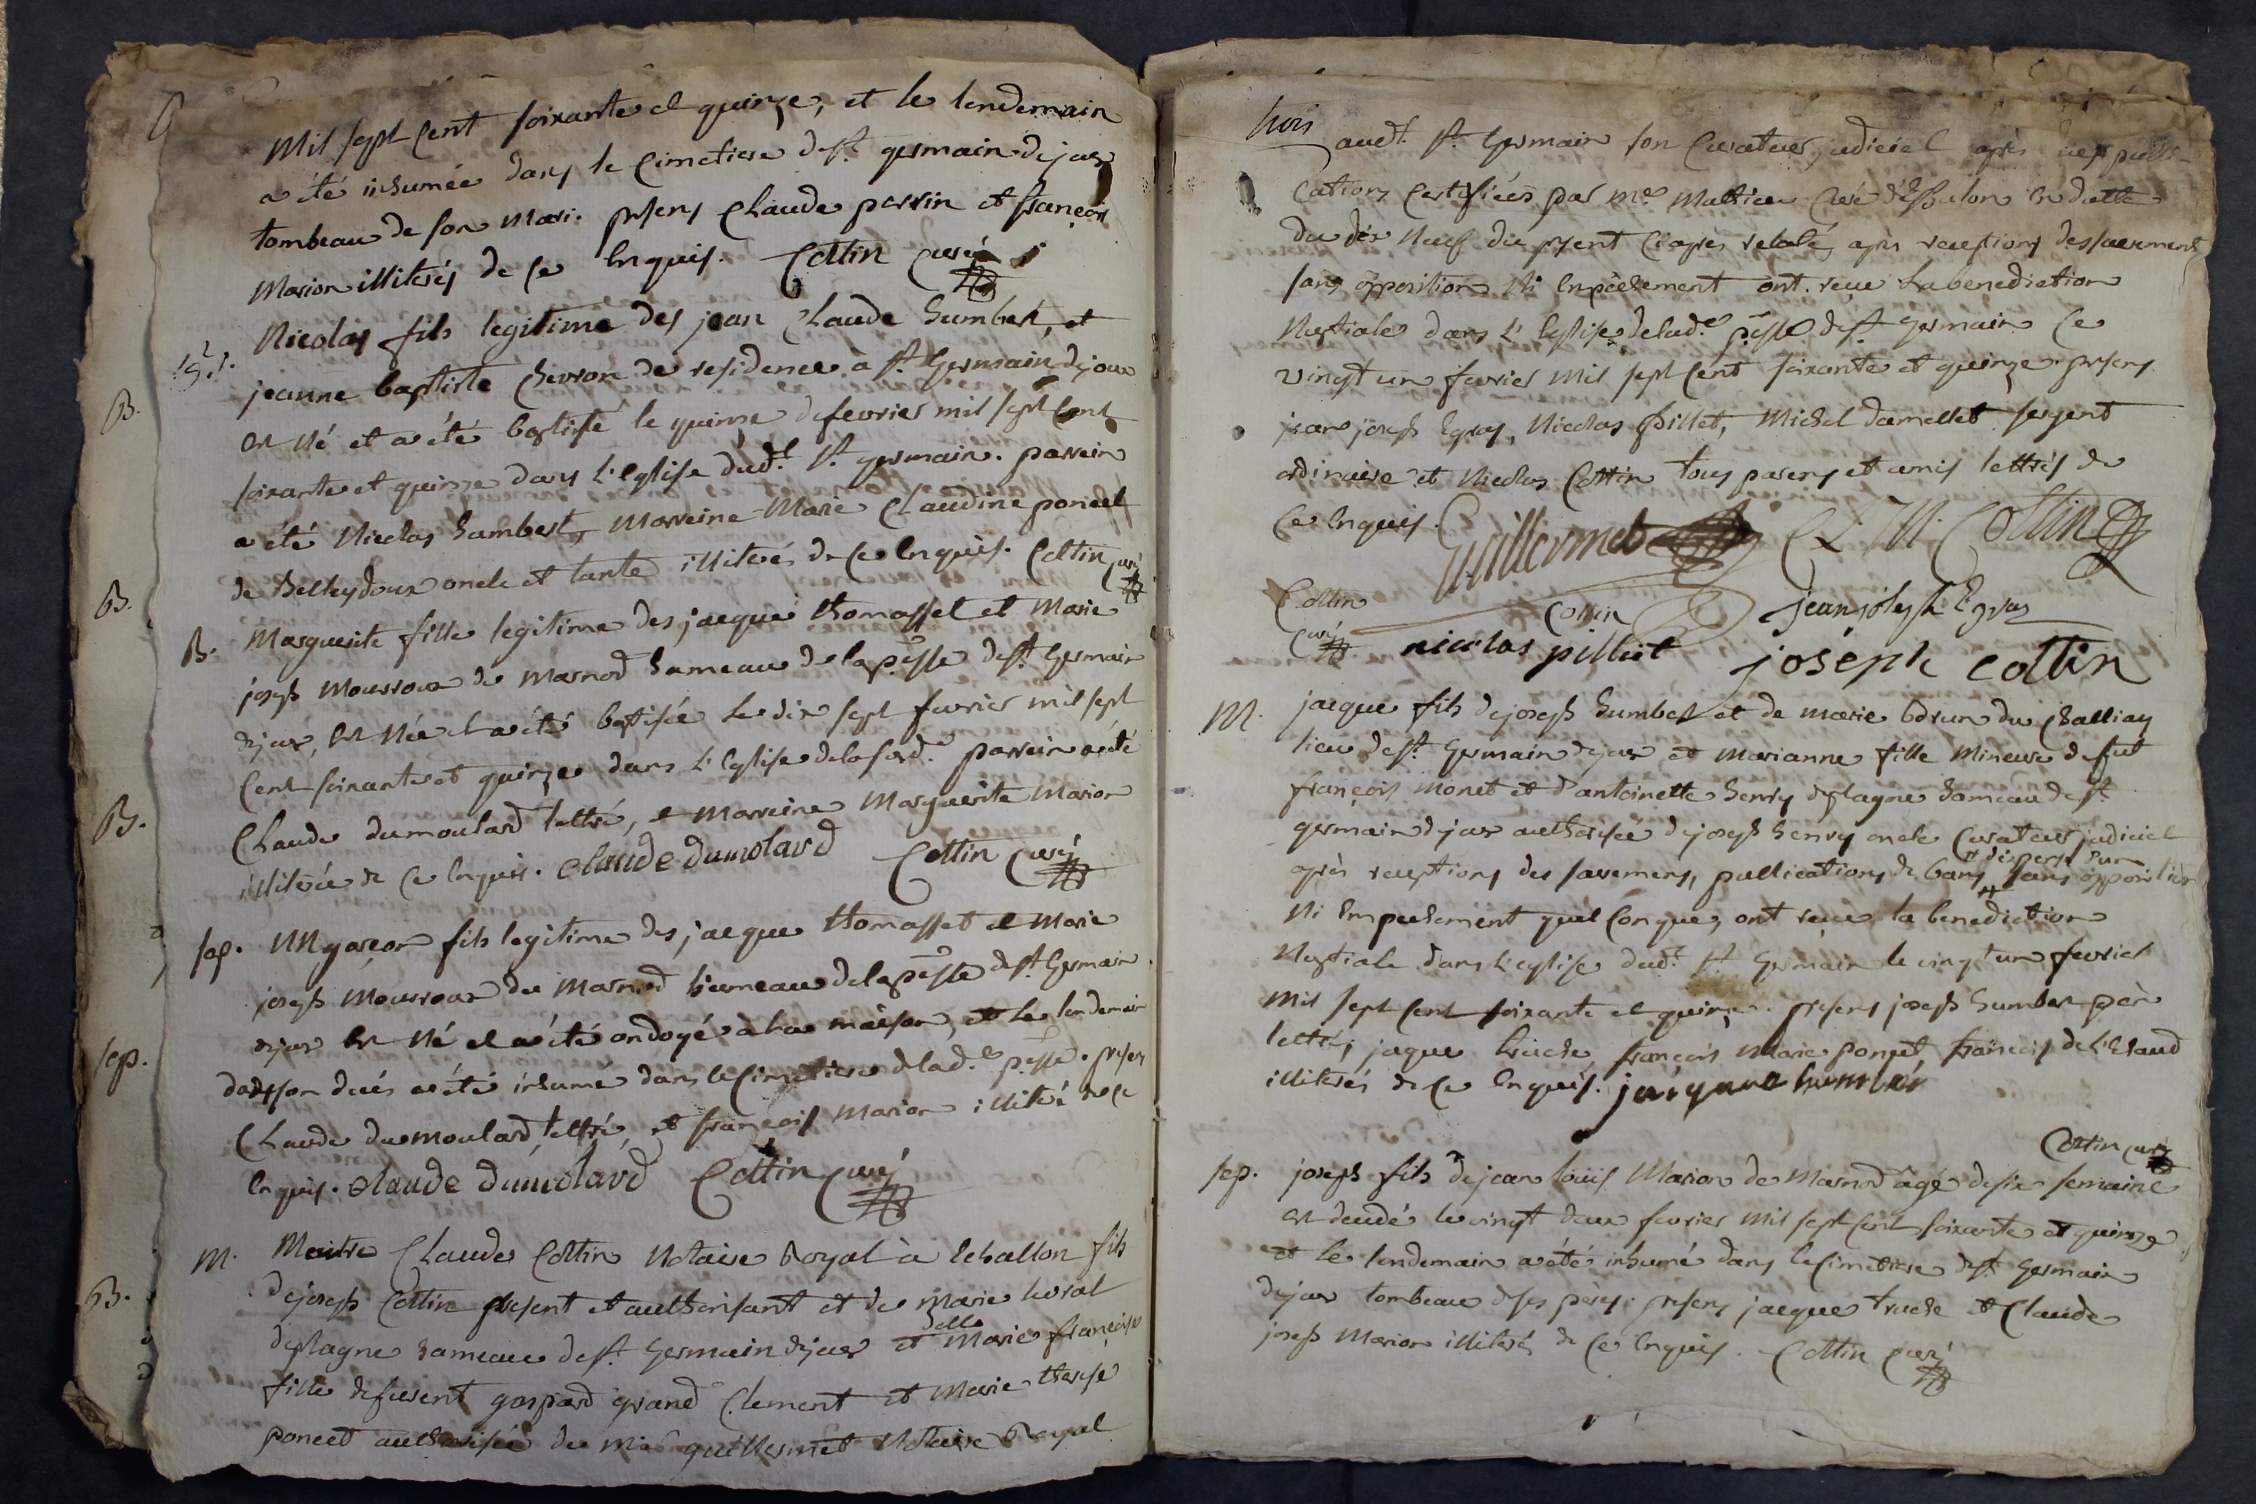 Mil sept Cent soixante et quinze, et le lendemain
a été inhumée dans le Cimetiere de st. germain de joux
tombeau de son mari. presens Claude perrin et françois
Marion illiterés de ce Enquis. Cottin Curé
B. Nicolas fils legitime des jean Claude humbert, et
jeanne baptiste Chevron de residence a st. Germain dejoux
est né et a été baptisé le quinze defevrier mil sept Cent
soixante et quinze dans L'Eglise dudt. st. germain. parrein
a été Nicolas humbert, Marreine Marie Claudine poncet
de Belleydoux oncle et tante illiterés de ce Enquis. Cottin Curé
B. Marguerite fille legitime des jacque thomasset et Marie
joseph Moussoux de Marnod hameau de la psse de st. Germain
dejoux, est née et a été baptisée le dix sept fevrier mil sept
Cent soixante et quinze dans L'Eglise delasusd. parrein a été
Claude dumoulard lettré, et marreine Marguerite Marion
illiterée de ce Enquis. claude dumolard Cottin Curé
sep. Un garçon fils legitime des jacque thomasset et Marie
joseph Moussoux de Marnod hameau delapsse de st. Germain
dejoux est né et a été ondoyé a la maison, et le lendemain
de son decés a été inhumé dans le Cimetiere delad. psse. presens
Claude dumoulard lettré, et françois Marion illiteré de ce
Enquis. claude dumolard Cottin Curé
M. Maitre Claude Cottin Notaire Royal à Echallon fils
dejoseph Cottin present et authorisant et de Marie
deplagne hameau de st. Germain dejoux et delle Marie françoise
fille defurent gaspard grand Clement et Marie therese
poncet authorisée de me guillermet Notaire Royal
trois
audt. st. Germain son Curateur judiciel après les publi-
Cations Certifiées par mre Curé d'Echalon en datte
du dix Neuf du present après receptions des sacremens
sans opposition Ni Enpechement ont reçu La benediction
Nuptiale dans L'Eglise delad. psse de st. germain Ce
vingt un fevrier mil sept Cent soixante et quinze. presens
jean joseph Egraz, Nicolas pillet, Michel damellet sergent
ordinaire et Nicolas Cottin tous parens et amis lettrés de
Ce Enquis. Guillermet C N. Cottin
Cottin Curé Cottin jean joseph Egraz
nicolas pilliet joséph cottin
M. jacque fils dejoseph humbert et de marie du Challiay
lieu de st. Germain dejoux et Marianne fille Mineure de fut
françois Monet et d'antoinette henry deplagne hameau de st.
germain dejoux authorisée dejoseph henry oncle Curateur judiciel
et dispense d'un
après receptions des sacremens, publications de bans sans opposition
Ni Empechement quel Conques, ont reçu la benediction
Nuptiale dans L'eglise dudt. st. Germain le vingt un fevrier
Mil sept Cent soixante et quinze. presens joseph humbert père
lettré, jaque truche, françois Marie poncet, françois de L'Chaud
illiterés de ce Enquis. jacque humbert
Cottin Curé
sep. joseph fils dejean louis Marion de Marnod âgé desix semaine
est decedé le vingt deux fevrier mil sept Cent soixante et quinze
et le lendemain a été inhumé dans le Cimetiere de st. Germain
dejoux tombeau deses pères. presens jacque truche et Claude
joseph Marion illiterés de Ce Enquis. Cottin Curé
B.
B.
B.
sep.
B.